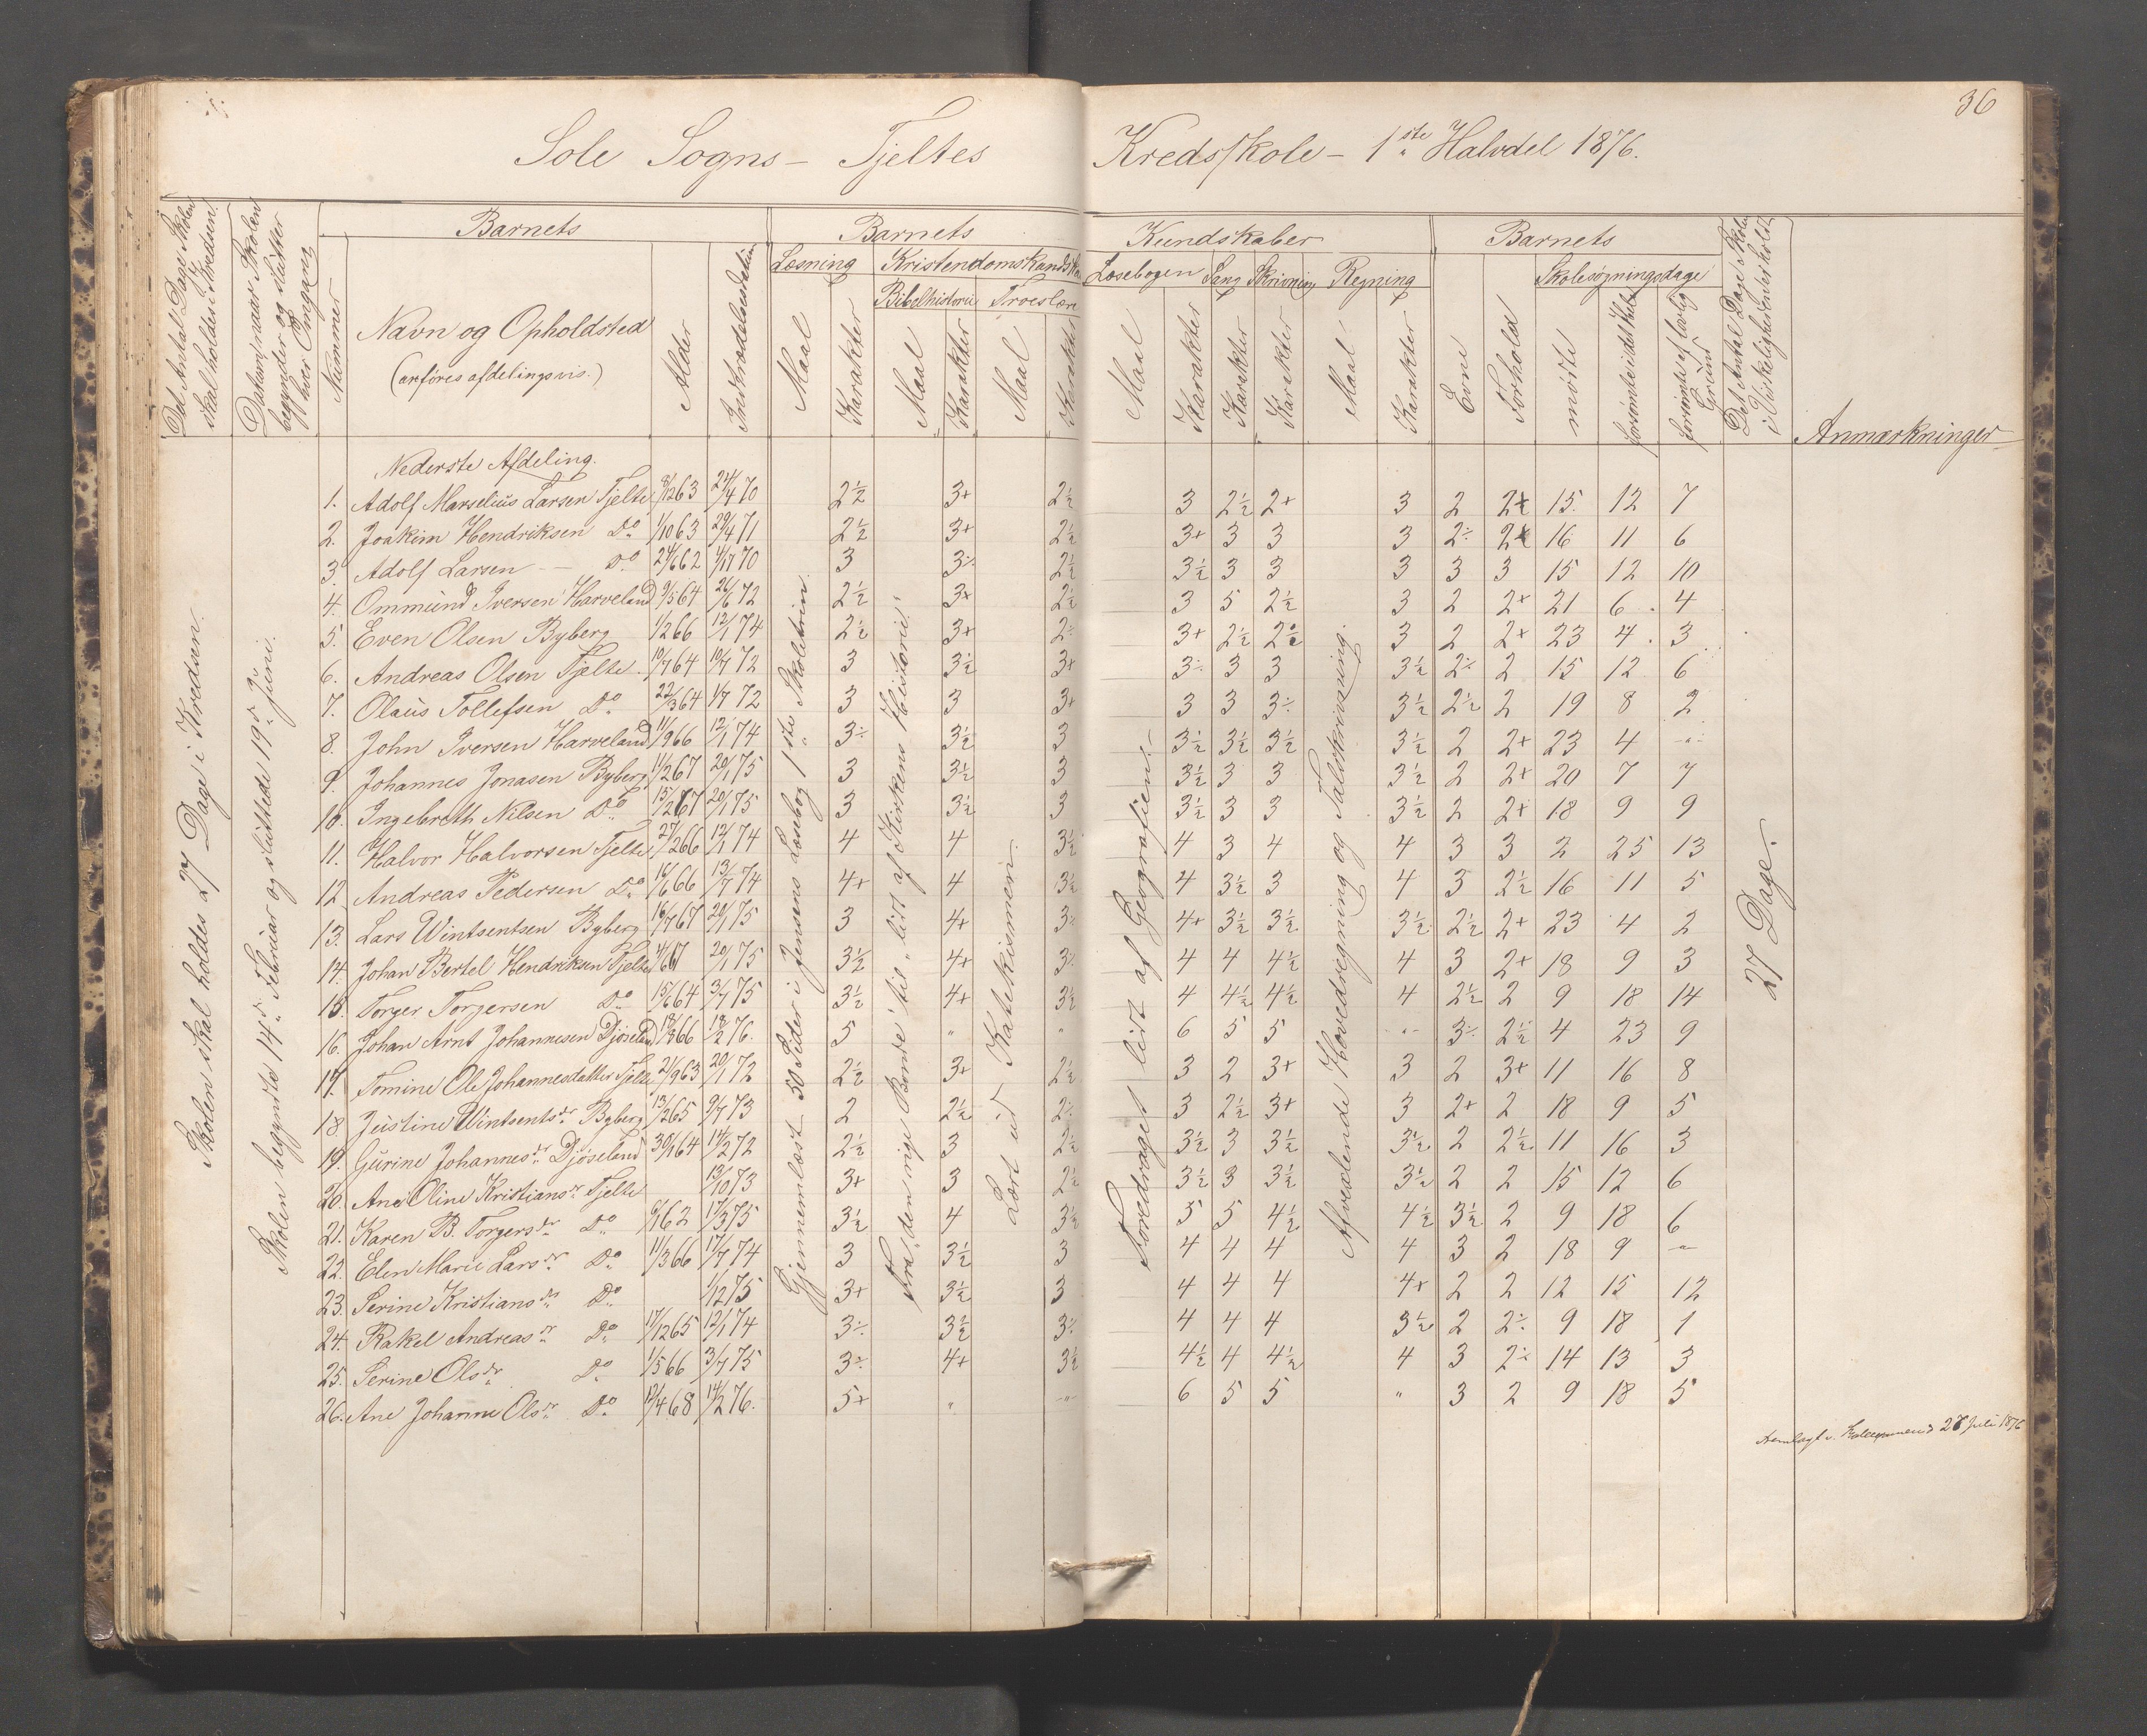 36
Sole Sogns – Tjeltes Kredsskole – 1ste Halvdel 1876.
Det Antal Dage Skolen skal holdes i Kredsen.
Datum, naar Skolen begynder og slutter hver Omgang
Nummer
Barnets
Navn og Opholdsted
(anföres afdelingsvis.)
Alder
Indtrædelsesdatum
Barnets Kundskaber
Læsning
Maal
Karakter
Kristendomskundsk
Bibelhistorie
Maal
Karakter
Troeslære
Maal
Karakter
Læsebogen
Maal
Karakter
Sang
Karakter
Skrivning
Karakter
Regning
Maal
Karakter
Barnets
Evne
Forhold
Skolesøgningsdage
mødte
forsömte i det Hele
forsömte af lovlig Grund
Det Antal Dage Skolen i Virkeligheden er holdt
Anmærkninger
Skolen skal holdes 27 Dage i Kredsen.
Skolen begyndte 14d. Februar og sluttede 19d. Juni.
Gjennemlæst 50 Sider i Jensens Læsebog 1ste Skoletrin.
Fra "den rige Bonde" til "lidt af Kirkens Historie".
Lært ud Katekismen.
Foredraget lidt af Geografien.
Afvexlende Hovedregning og Talskrivning.
27 Dage.
Nederste Afdeling.
1. Adolf Marselius Larsen Tjelte 8/12 63 24/4 70 2½ 3+ 2½ 3 2½ 2+ 3 2 2+ 15 12 7
2. Joakim Hendriksen Do 1/10 63 29/4 71 2½ 3+ 2½ 3+ 3 3 3 2÷ 2+ 16 11 6
3. Adolf Larsen — Do 24/6 62 4/7 70 3 3÷ 2½ 3½ 3 3 3 3 3 15 12 10
4. Ommund Iversen Harveland 9/5 64 26/6 72 2½ 3+ 2½ 3 5 2½ 3 2 2+ 21 6 4
5. Even Olsen Byberg 1/2 66 12/1 74 2½ 3+ 2÷ 3+ 2½ 2½ 3 2 2+ 23 4 3
6. Andreas Olsen Tjelte 10/7 64 10/7 72 3 3½ 3+ 3÷ 3 3 3½ 2÷ 2 15 12 6
7. Olaus Tollefsen Do 22/3 64 1/7 72 3 3 3+ 3 3 3÷ 3½ 2½ 2 19 8 2
8. John Iversen Harveland 11/9 66 12/1 74 3÷ 3½ 3 3½ 3½ 3½ 3½ 2 2+ 23 4 "
9. Johannes Jonasen Byberg 11/2 67 20/1 75 3 3½ 3 3½ 3 3 3½ 2 2+ 20 7 7
10. Ingebreth Nilsen Do 15/2 67 20/1 75 3 3½ 3 3½ 3 3 3½ 2 2+ 18 9 9
11. Halvor Halvorsen Tjelte 27/2 66 12/1 74 4 4 3½ 4 3 4 4 3 3 2 25 13
12. Andreas Pedersen Do 16/6 66 13/7 74 4+ 4 3½ 4 3½ 3 4 3 2½ 16 11 5
13. Lars Wintsentsen Byberg 16/7 67 20/1 75 3 4+ 3÷ 4+ 3½ 3½ 3½ 2½ 2+ 23 4 2
14. Johan Bertel Hendriksen Tjelte 4/6 67 20/1 75 3½ 4+ 3÷ 4 4 4½ 4 3 2+ 18 9 3
15. Torger Torgersen Do 15/6 64 3/7 75 3½ 4+ 3½ 4 4½ 4½ 4 2½ 2 9 18 14
16. Johan Arnt Johannesen Djöseland 18/3 66 18/2 76. 5 " " 6 5 5 " 3÷ 2½ 4 23 9
17. Tomine Ole Johannesdatter Tjelte 21/9 63 20/1 72 2½ 3+ 2½ 3 2 3+ 3 2 3+ 11 16 8
18 Justine Wintsentsdr Byberg 13/2 65 9/7 73 2 2½ 2÷ 3 2½ 3+ 3 2+ 2 18 9 5
19. Gurine Johannesdr Djöseland 30/1 64 14/2 72 2½ 3 2½ 3½ 3 3½ 3½ 2 2½ 11 16 3
20. Ane Oline Kristiansdr Tjelte 13/10 73 3+ 3 2½ 3½ 3 3½ 3½ 2 2 15 12 6
21. Karen B. Torgersdr Do 6/1 62 17/3 75 3½ 4 3½ 5 5 4½ 4½ 3½ 2 9 18 6
22. Elen Marie Larsdr Do 11/3 66 17/7 74 3 3½ 3 4 4 4 4 3 2 18 9 "
23. Serine Kristiansdr Do 1/12 75 3+ 3½ 3 4 4 4 4+ 2 2 12 15 12
24. Rakel Andreasdr Do 17/12 65 12/1 74 3÷ 3½ 3÷ 4 4 4 3½ 2 2÷ 9 18 1
25. Serine Olsdr Do 1/5 66 3/7 75 3÷ 4+ 3½ 4½ 4 4½ 4 3 2÷ 14 13 3
26. Ane Johanne Olsdr Do 12/4 68 14/2 76. 5+ " " 6 5 5 " 3 2 9 18 5
Fremlagt 28 Juli 1876